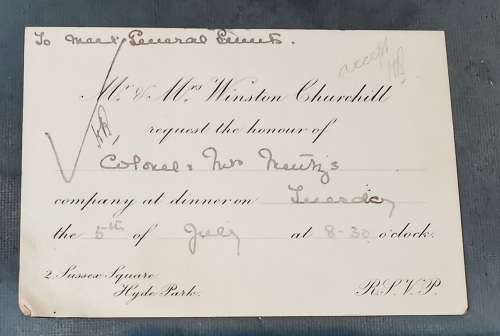 To meet General Smuts.
accept
Mr. & Mrs Winston Churchill
request the honour of
Colonel & Mrs Mentz's
company at dinner on Tuesday
the 5th of July at 8-30 o'clock.
2 Sussex Square.
Hyde Park. R.S.V.P.